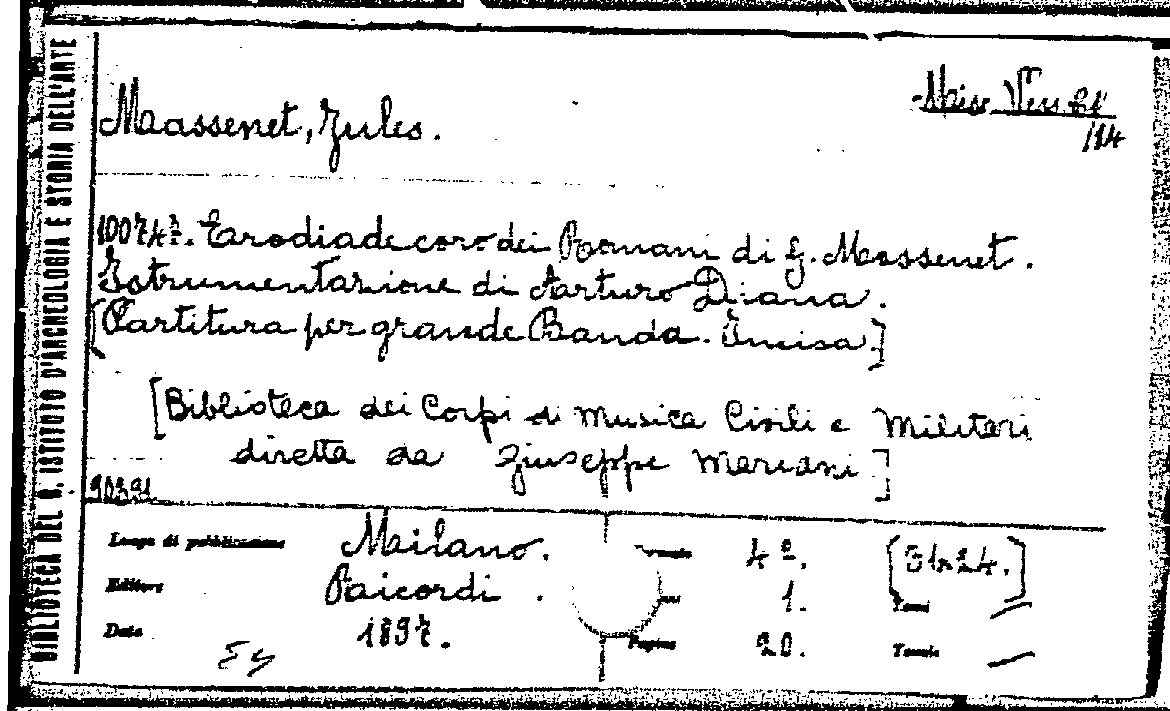 BIBLIOTECA DEL R. ISTITUTO D'ARCHEOLOGIA E STORIA DELL'ARTE
Massenet, Jules.
Miss. Vess.
114
Erodiade coro dei Romani di G. Massenet.
Istrumentazione di Arturo Diana.
[Partitura per grande Banda. Incisa.]
[Biblioteca dei Corpi di Musica Civili e Militari
diretta da Giuseppe Mariani]
90391
Luogo di pubblicazione Milano. 4º. [31x24.]
Editore Ricordi. 1. Tomi —
Data 1897. Pagine 20. Tavole —